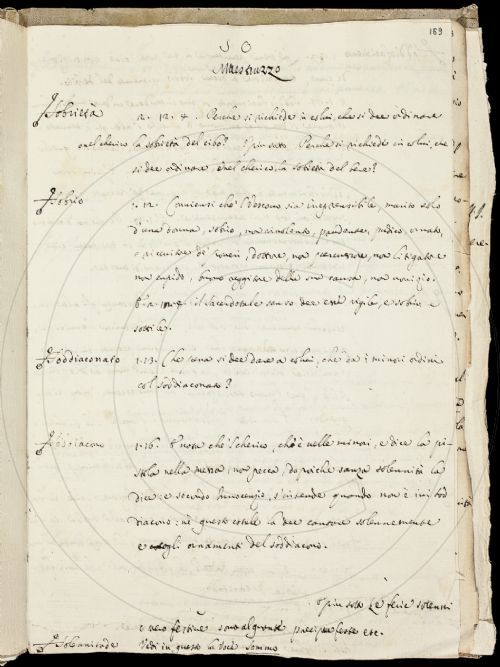 169
S O
Maestruzzo
Sobrietà 2. 12. 4. Perchè si richiede in colui, che si dee ordinare
nel cherico la sobrietà del cibo? E piu sotto Perchè si richiede in colui, che
si dee ordinare, e nel cherico la sobrietà del bere?
Sobrio 1. 12. Conviensi che 'l Vescovo sia irreprensibile, marito solo
d'una donna, sobrio, non vinolento, prudente, pudico, ornato,
o ricevitore de' poveri, Dottore, non percuotitore, non litigatore
non cupido, buono reggitore della sua causa, non
E il sacerdotale senso dee esser vigile, e sobrio e
sottile.
Soddiaconato 1. 13. Che pena si dee dare a colui, che dà i minori ordini
col soddiaconato?
Soddiacono 1. 16. E nota che 'l cherico, ch'è nelle minori, e dice la pi-
stola nella messa, non pecca, dopoichè sanza solennità la
dice e secondo Innocenzio, s'intende quando non è ivi sod
diacono: nè questo cotale la dee cantare solennemente
e cogli ornamenti del soddiacono.
E piu sotto Le ferie solenni
o vero festive sono alquante
Solennitade Vedi in questo la voce Sommo